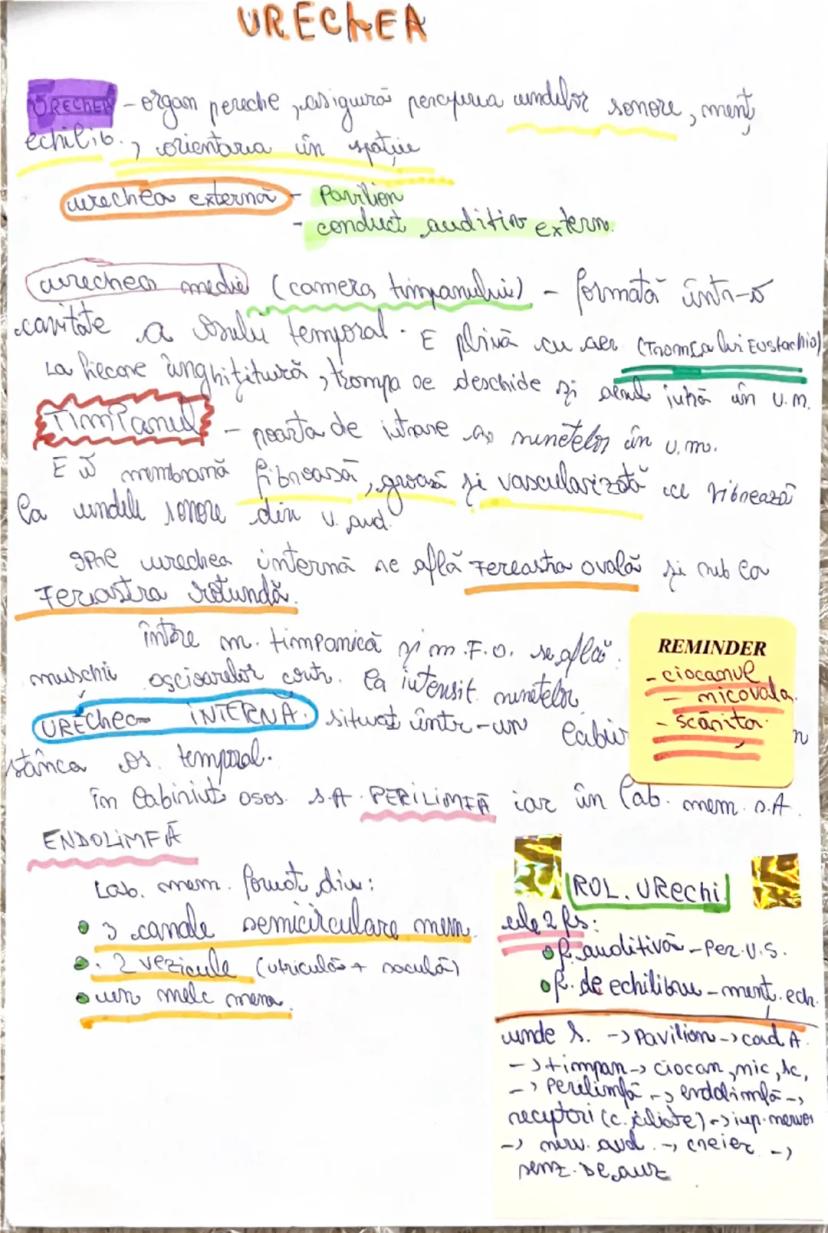 URECHEA
URECHEA - organ pereche, asigură perceperea undelor sonore, menț
echilib., orientarea în spațiu
urechea externă - Pavilion
- conduct auditiv extern.
urechea medie (camera timpanului) - formată într-o
cavitate a osului temporal. E plină cu aer (Trompa lui Eustachio)
La fiecare înghițitură, trompa se deschide și aerul intră în u.m.
TIMPANUL - poarta de intrare a sunetelor în u.m.
E o membrană fibroasă, groasă și vascularizată ce vibrează
la undele sonore din u. aud.
Spre urechea internă se află Fereastra ovală și sub ea
Feriastra rotundă.
între m. timpanică și m. F.O. se află
mușchii oscioarelor contr. la intensit. sunetelor
REMINDER
- ciocanul
- nicovala
- scărița
URECHEA INTERNĂ. situat într-un labir
stânca os. temporal.
în labirint osos s.A. PERILIMFĂ iar în lab. mem. s.A.
ENDOLIMFĂ
Lab. mem. format din:
3 canale semicirculare mem.
2 vezicule (utriculă + saculă)
un melc mem.
ROL. URechi
ele 2 fs:
f. auditivă - Per. U.S.
f. de echilibru - menț. ech.
unde s. -> Pavilion -> cond A.
-> timpan -> ciocan, nic, sc,
-> Perilimfă -> endolimfă ->
receptori (c. ciliate) -> imp. nervos
-> nerv. aud. -> creier ->
senz. de auz